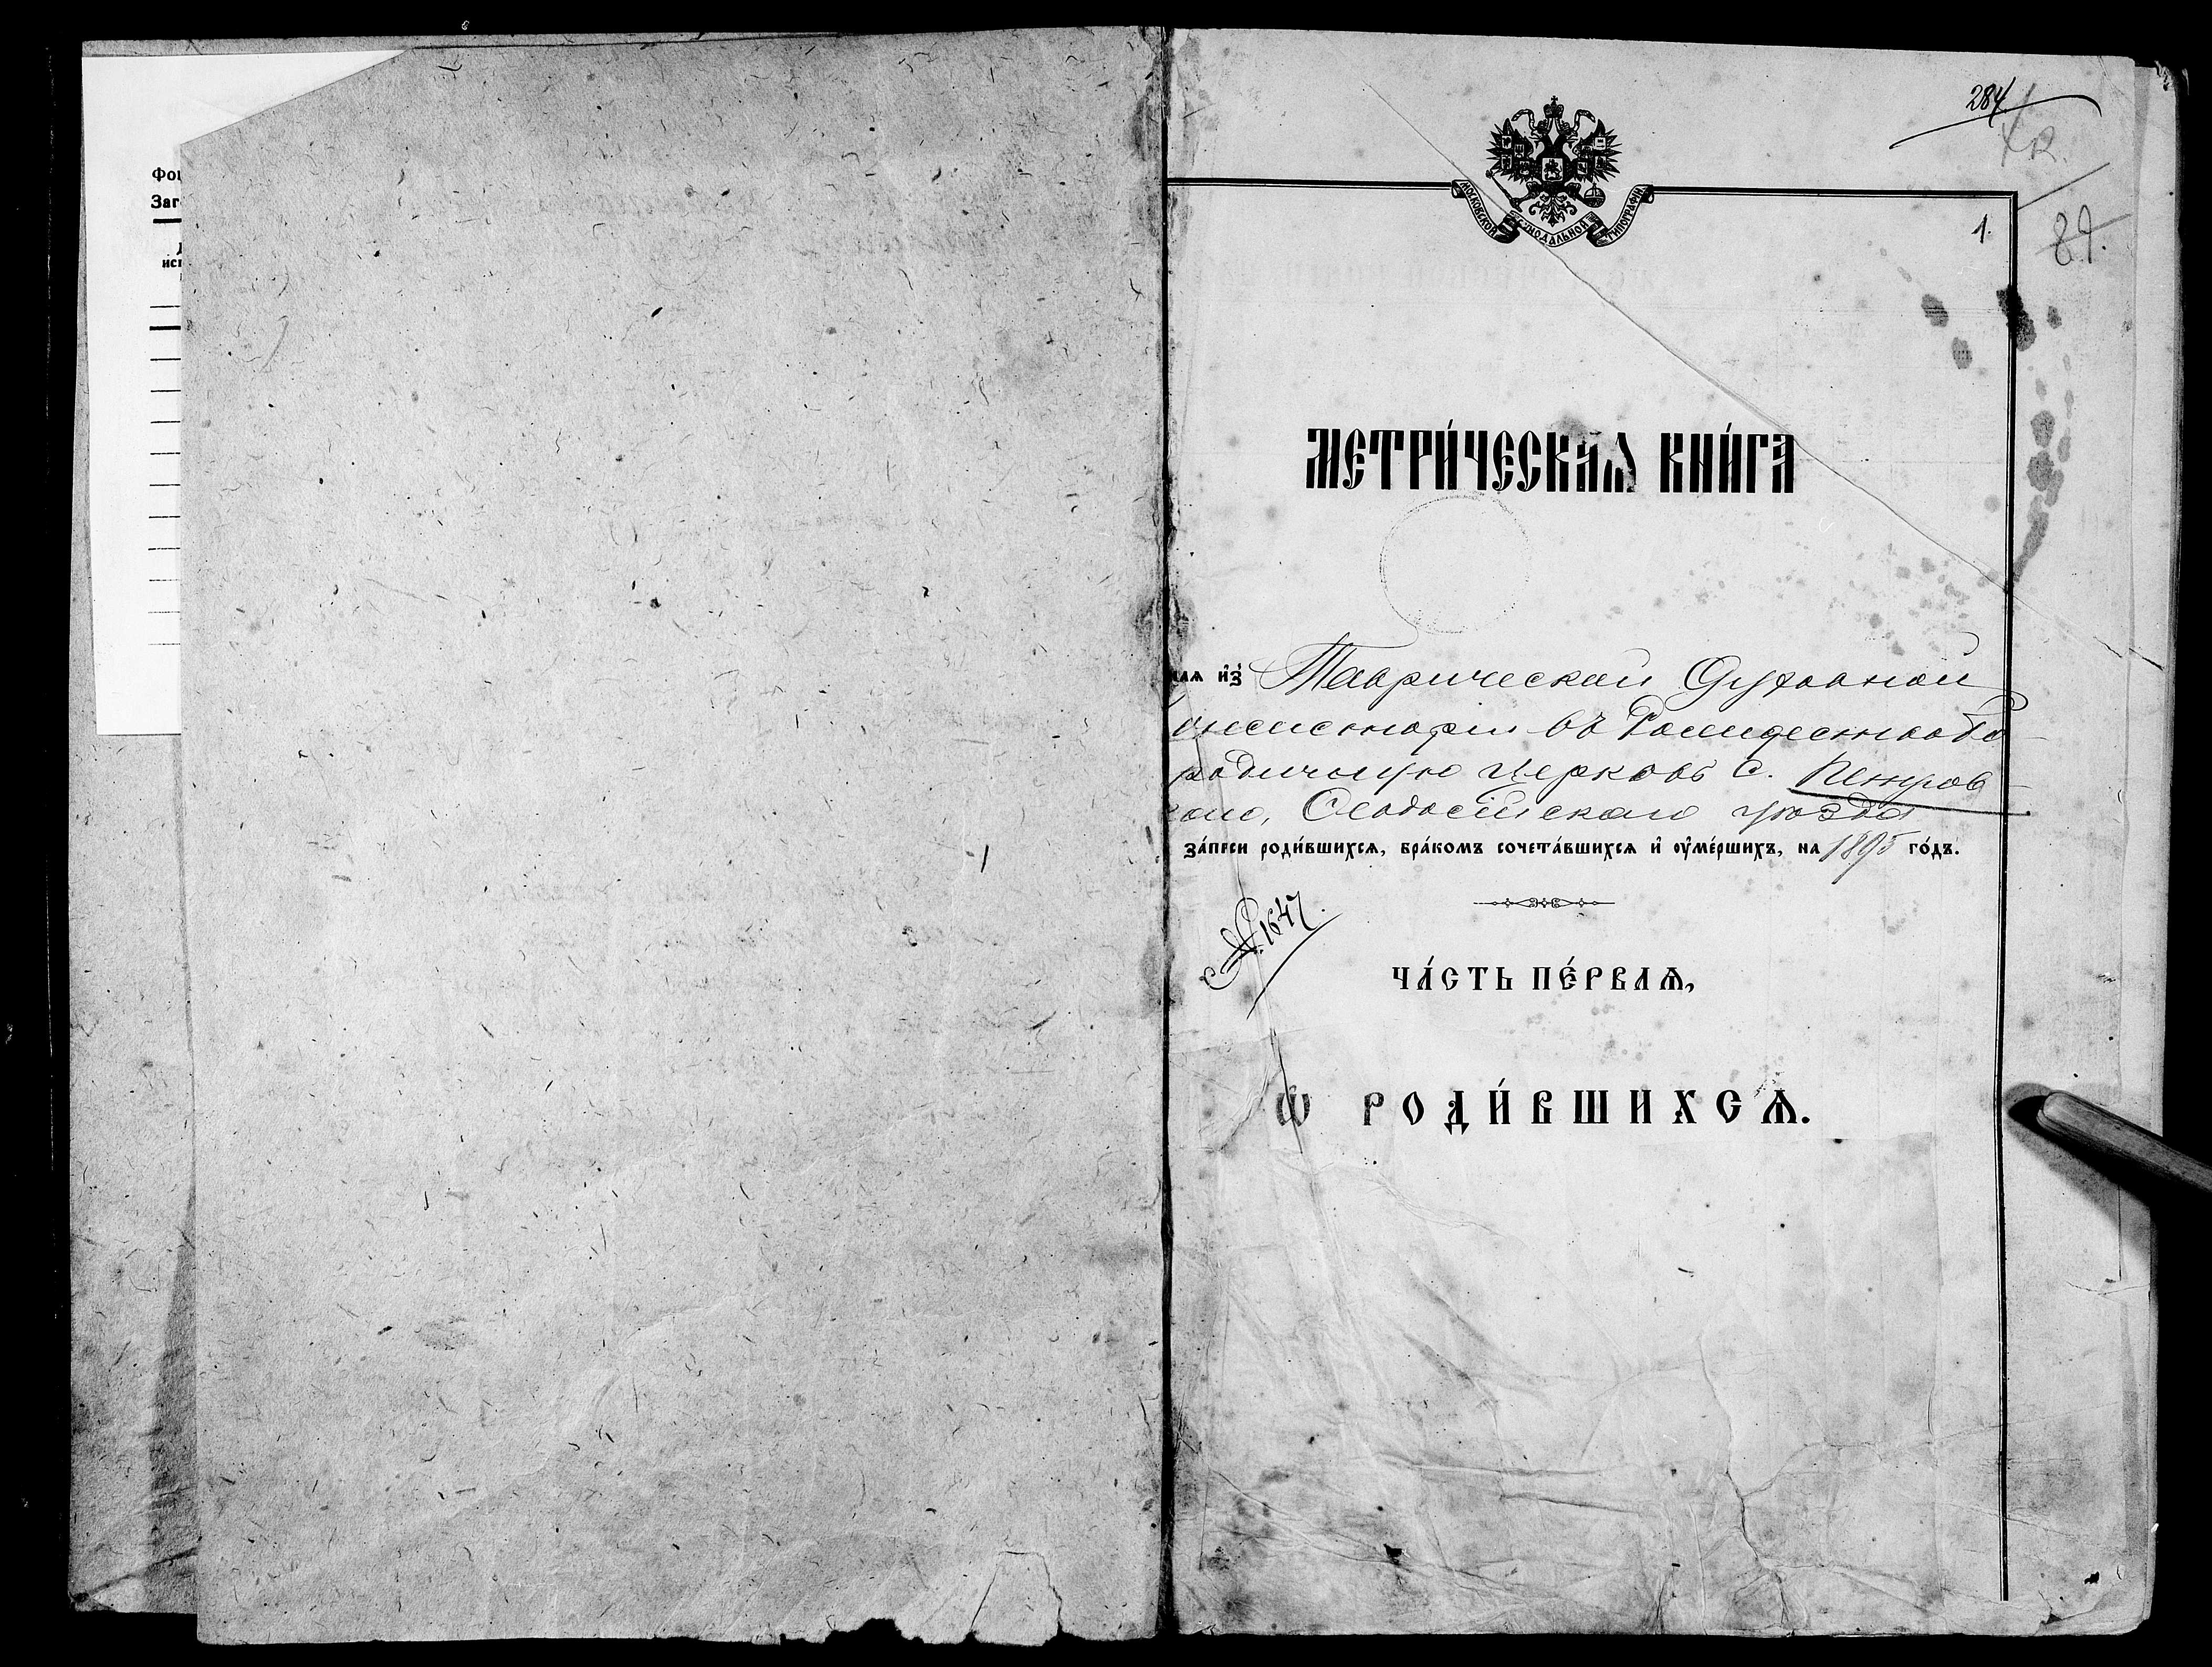 Фон
Заг
исп
284
82.
89.
1.
МОСКОВСКОЙ СѴНОДАЛЬНОЙ ТИПОГРАФІИ
МЕТРИ́ЧЕСКАѦ КНИ́ГА
наѧ и҆з̾ Таврической Духовной
онсисторіи въ Рождествобо-
родичную церковь с. Петров-
скаго, Ѳеодосійскаго уѣзда
за́писи роди́вшихсѧ, бра́комъ сочета́вшихсѧ и҆ ᲂу҆ме́ршихъ, на 1895 го́дъ.
№ 1647.
ЧА́СТЬ ПЕ́РВАѦ,
Ѽ РОДИ́ВШИХСѦ.